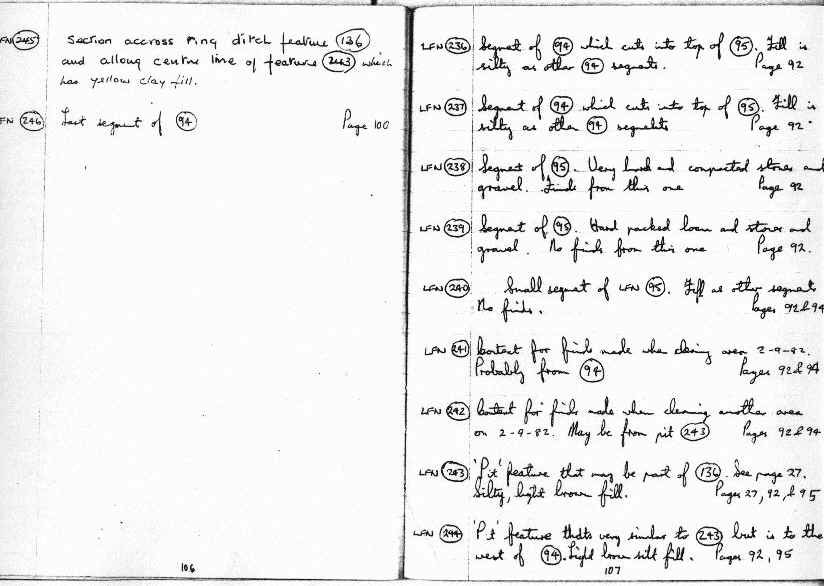 FN 245 Section accross ring ditch feature 136
and along centre line of feature 243 which
has yellow clay fill.
FN 246 Last segment of 94 Page 100
106
LFN 236 Segment of 94 which cuts into top of 95. Fill is
silty as other 94 segments. Page 92
LFN 237 Segment of 94 which cuts into top of 95. Fill is
silty as other 94 segments Page 92
LFN 238 Segment of 95. Very hard and compacted stones and
gravel. Finds from this one Page 92
LFN 239 Segment of 95. Hard packed loam and stones and
gravel. No finds from this one Page 92.
LFN 240 Small segment of LFN 95. Fill as other segments
No finds. Pages 92 & 94
LFN 241 Context for finds made when cleaning area 2-9-82.
Probably from 94 Pages 92 & 94
LFN 242 Context for finds made when cleaning another area
on 2-9-82. May be from pit 243 Pages 92 & 94
LFN 243 'Pit' feature that may be part of 136. See page 27.
Silty, light brown fill. Pages 27, 92, & 95
LFN 244 'Pit' feature thats very similar to 243 but is to the
west of 94. Light brown silt fill. Pages 92, 95
107